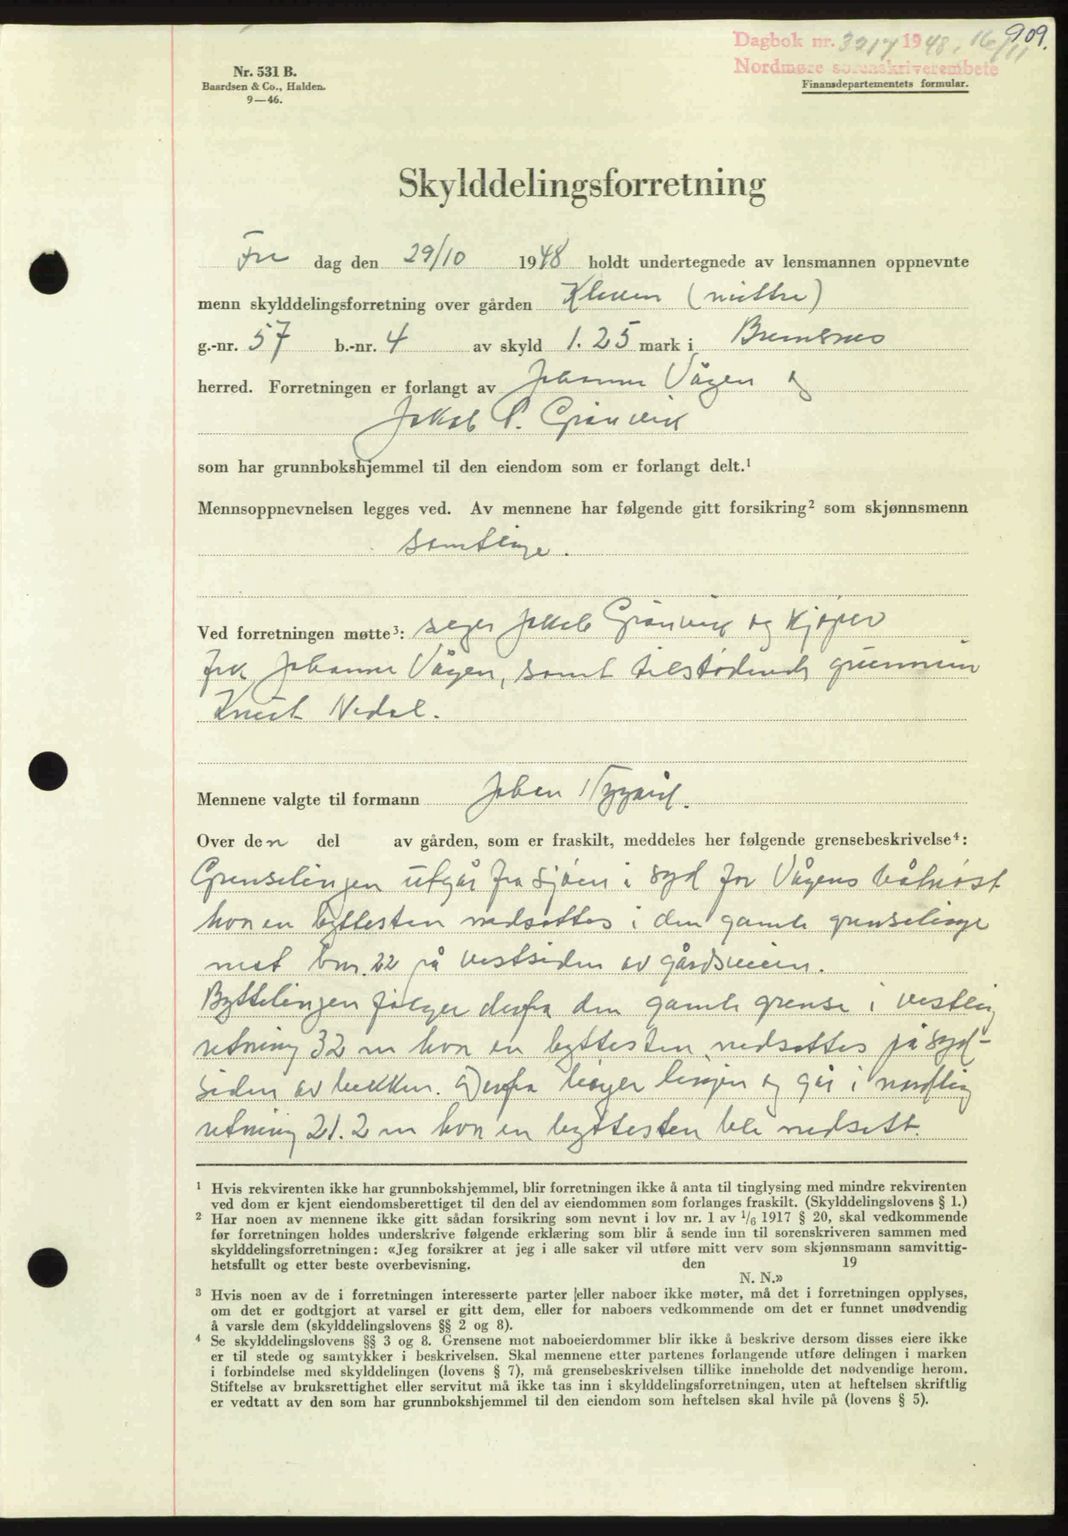 909.
Dagbok nr. 3217 1948. 16/11
Nordmøre sorenskriverembete
Nr. 531 B.
Baardsen & Co., Halden.
9—46.
Finansdepartementets formular.
Skylddelingsforretning
Fre dag den 29/10 1948 holdt undertegnede av lensmannen oppnevnte
menn skylddelingsforretning over gården (mittre)
g.-nr. 57 b.-nr. 4 av skyld 1.25 mark i Bremsnes
herred. Forretningen er forlangt av Johanne Vågen og
Jakob P. Grønvik
som har grunnbokshjemmel til den eiendom som er forlangt delt.¹
Mennsoppnevnelsen legges ved. Av mennene har følgende gitt forsikring² som skjønnsmenn
samtlige.
Ved forretningen møtte³: Jakob Grønvik og kjøper
frk Johanne Vågen, samt tilstødende
Knut Nedal.
Mennene valgte til formann Johan Nygård.
Over den del av gården, som er fraskilt, meddeles her følgende grensebeskrivelse⁴:
Grenselinjen utgår fra sjøen i syd for Vågens båtnøst
hvor en byttesten nedsettes i den gamle grenselinje
mot bnr. 22 på vestsiden av gårdsveien.
Byttelinjen følger derfra den gamle grense i vestlig
retning 32 m hvor en byttesten nedsettes på syd-
siden av bekken. Derfra bøyer linjen og går i nordlig
retning 21.2 m hvor en byttesten ble nedsatt.
¹ Hvis rekvirenten ikke har grunnbokshjemmel, blir forretningen ikke å anta til tinglysing med mindre rekvirenten
ved dom er kjent eiendomsberettiget til den del av eiendommen som forlanges fraskilt. (Skylddelingslovens § 1.)
² Har noen av mennene ikke gitt sådan forsikring som nevnt i lov nr. 1 av 1/6 1917 § 20, skal vedkommende
før forretningen holdes underskrive følgende erklæring som blir å sende inn til sorenskriveren sammen med
skylddelingsforretningen: «Jeg forsikrer at jeg i alle saker vil utføre mitt verv som skjønnsmann samvittig-
hetsfullt og etter beste overbevisning. den 19
N. N.»
³ Hvis noen av de i forretningen interesserte parter eller naboer ikke møter, må det i forretningen opplyses,
om det er godtgjort at varsel er gitt dem, eller for naboers vedkommende om det er funnet unødvendig
å varsle dem (skylddelingslovens §§ 2 og 8).
⁴ Se skylddelingslovens §§ 3 og 8. Grensene mot naboeierdommer blir ikke å beskrive dersom disses eiere ikke
er til stede og samtykker i beskrivelsen. Skal mennene etter partenes forlangende utføre delingen i marken
i forbindelse med skylddelingen (lovens § 7), må grensebeskrivelsen tillike inneholde det nødvendige herom.
Stiftelse av bruksrettighet eller servitut må ikke tas inn i skylddelingsforretningen, uten at heftelsen skriftlig
er vedtatt av den som har grunnbokshjemmel til den eiendom som heftelsen skal hvile på (lovens § 5).